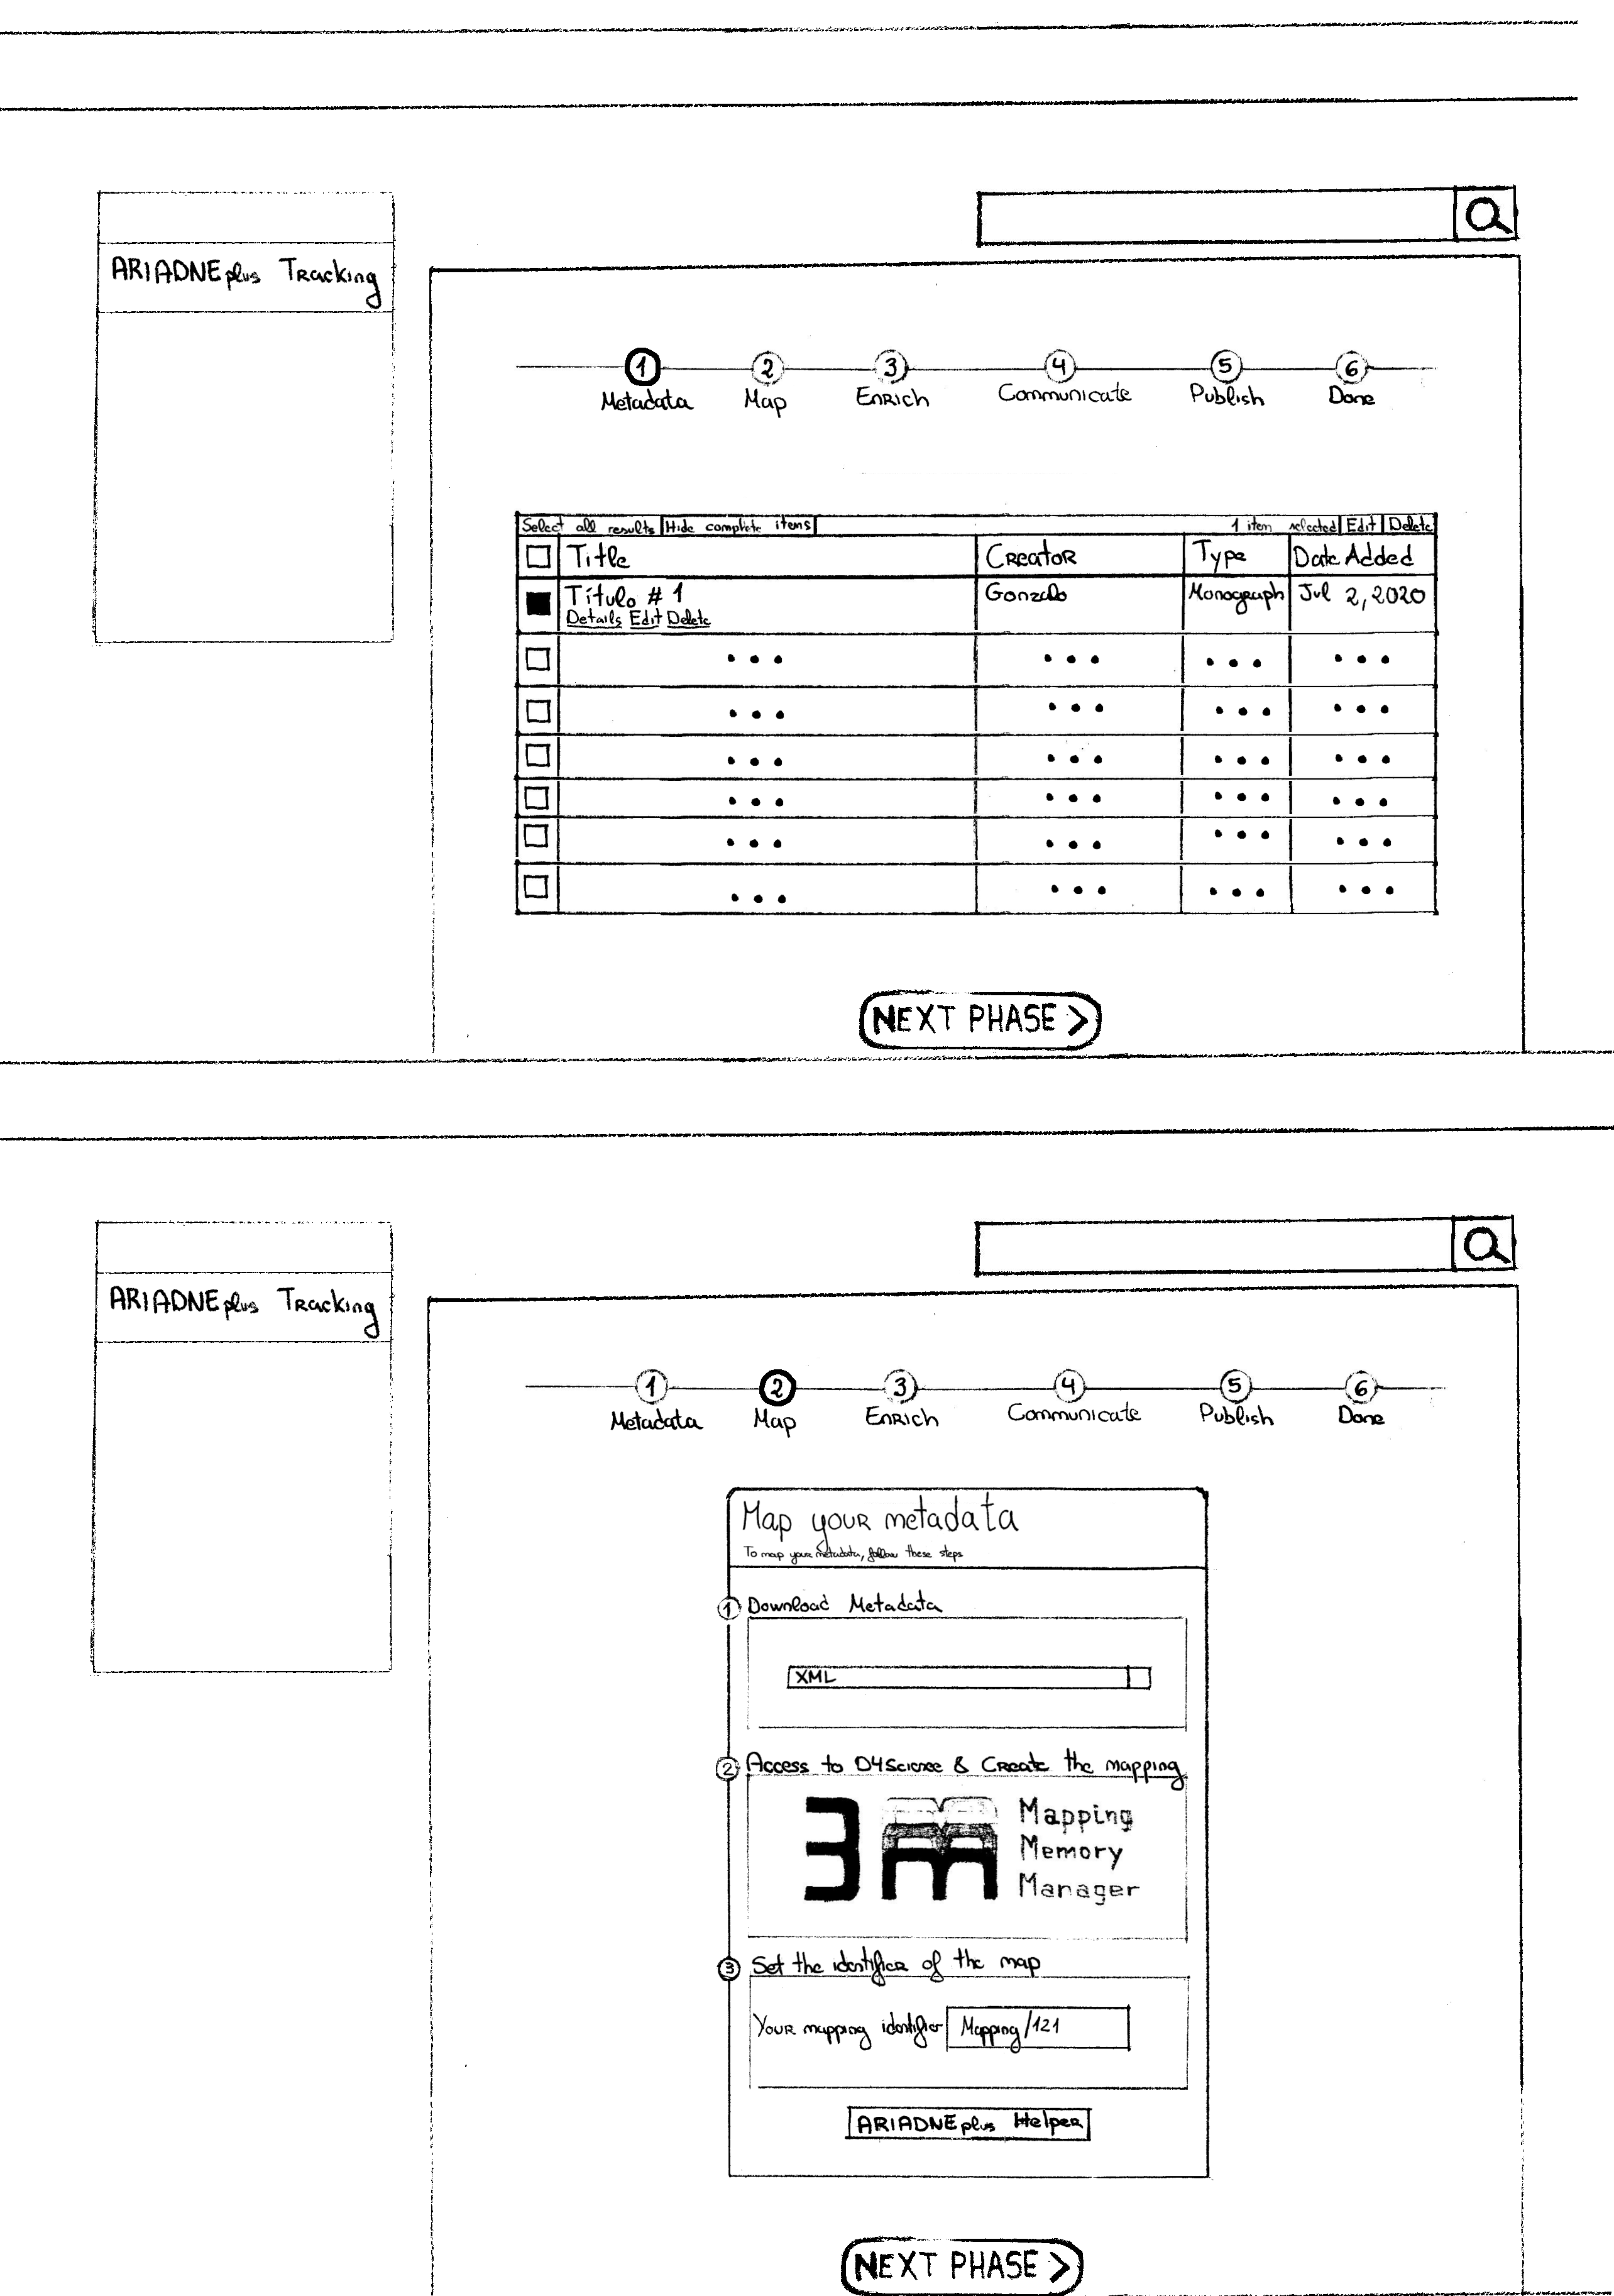 ARIADNEplus Tracking
1 2 3 4 5 6
Metadata Map Enrich Communicate Publish Done
Select all results Hide complete items 1 item selected Edit Delete
Title Creator Type Date Added
Título # 1 Gonzalo Monograph Jul 2, 2020
Details Edit Delete
... ... ... ...
... ... ... ...
... ... ... ...
... ... ... ...
... ... ... ...
... ... ... ...
NEXT PHASE >
ARIADNEplus Tracking
1 2 3 4 5 6
Metadata Map Enrich Communicate Publish Done
Map your metadata
To map your metadata, follow these steps
1 Download Metadata
XML
2 Access to D4Science & Create the mapping
3m Mapping
Memory
Manager
3 Set the identifier of the map
Your mapping identifier Mapping/121
ARIADNEplus Helper
NEXT PHASE >